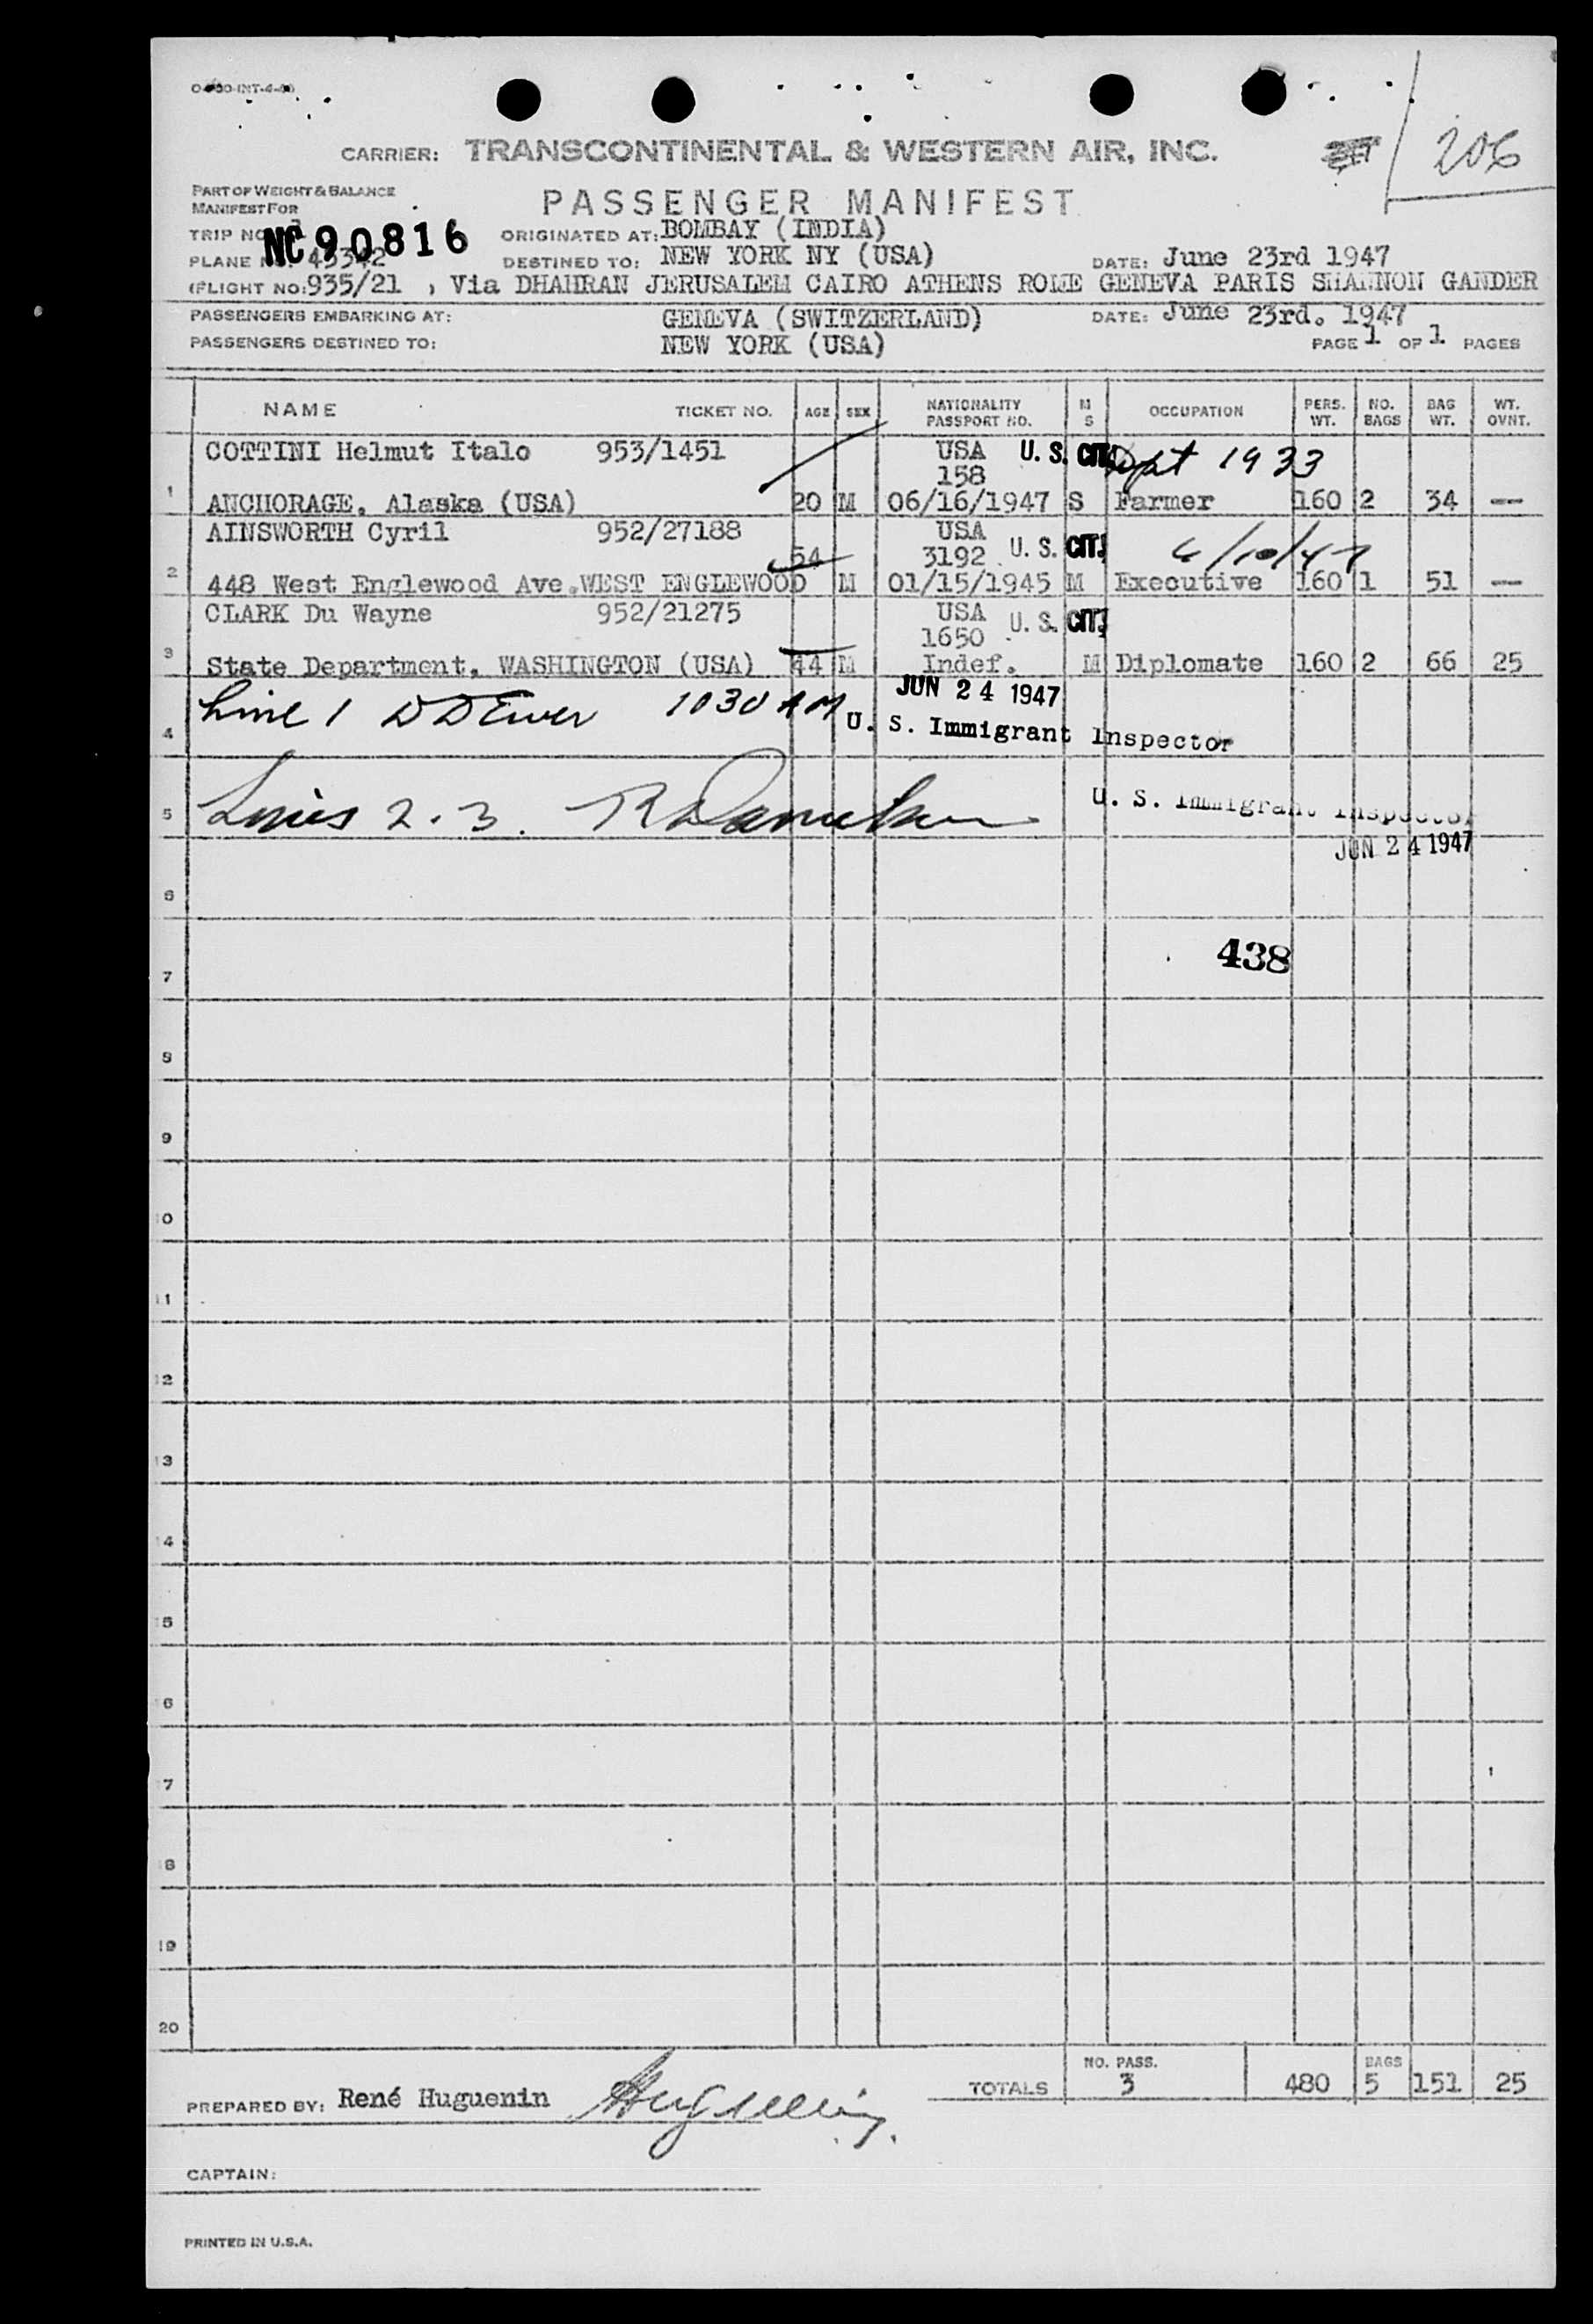 206
CARRIER: TRANSCONTINENTAL & WESTERN AIR, INC.
PART OF WEIGHT & BALANCE
MANIFEST FOR
PASSENGER MANIFEST
TRIP NO. NC90816 ORIGINATED AT: BOMBAY (INDIA)
PLANE NO. 45342 DESTINED TO: NEW YORK NY (USA) DATE: June 23rd 1947
(FLIGHT NO: 935/21 , Via DHAHRAN JERUSALEM CAIRO ATHENS ROME GENEVA PARIS SHANNON GANDER
PASSENGERS EMBARKING AT: GENEVA (SWITZERLAND) DATE: June 23rd. 1947
PASSENGERS DESTINED TO: NEW YORK (USA) PAGE 1 OF 1 PAGES
NAME TICKET NO. AGE SEX NATIONALITY PASSPORT NO. M S OCCUPATION PERS. WT. NO. BAGS BAG WT. WT. OVNT.
COTTINI Helmut Italo 953/1451 USA U. S. CIT. Sept 1933
158
1 ANCHORAGE, Alaska (USA) 20 M 06/16/1947 S Farmer 160 2 34 --
AINSWORTH Cyril 952/27188 USA
54 3192 U. S. CIT. 6/10/47
2 448 West Englewood Ave.WEST ENGLEWOOD M 01/15/1945 M Executive 160 1 51 --
CLARK Du Wayne 952/21275 USA U. S. CIT.
1650
3 State Department, WASHINGTON (USA) 44 M Indef. M Diplomate 160 2 66 25
Line 1 1030 AM JUN 24 1947
4 U. S. Immigrant Inspector
5 Lines 2.3. U. S. Immigrant Inspector
JUN 24 1947
6
438
7
8
9
10
11
12
13
14
15
16
17
18
19
20
NO. PASS. BAGS
TOTALS 3 480 5 151 25
PREPARED BY: René Huguenin
CAPTAIN:
PRINTED IN U.S.A.